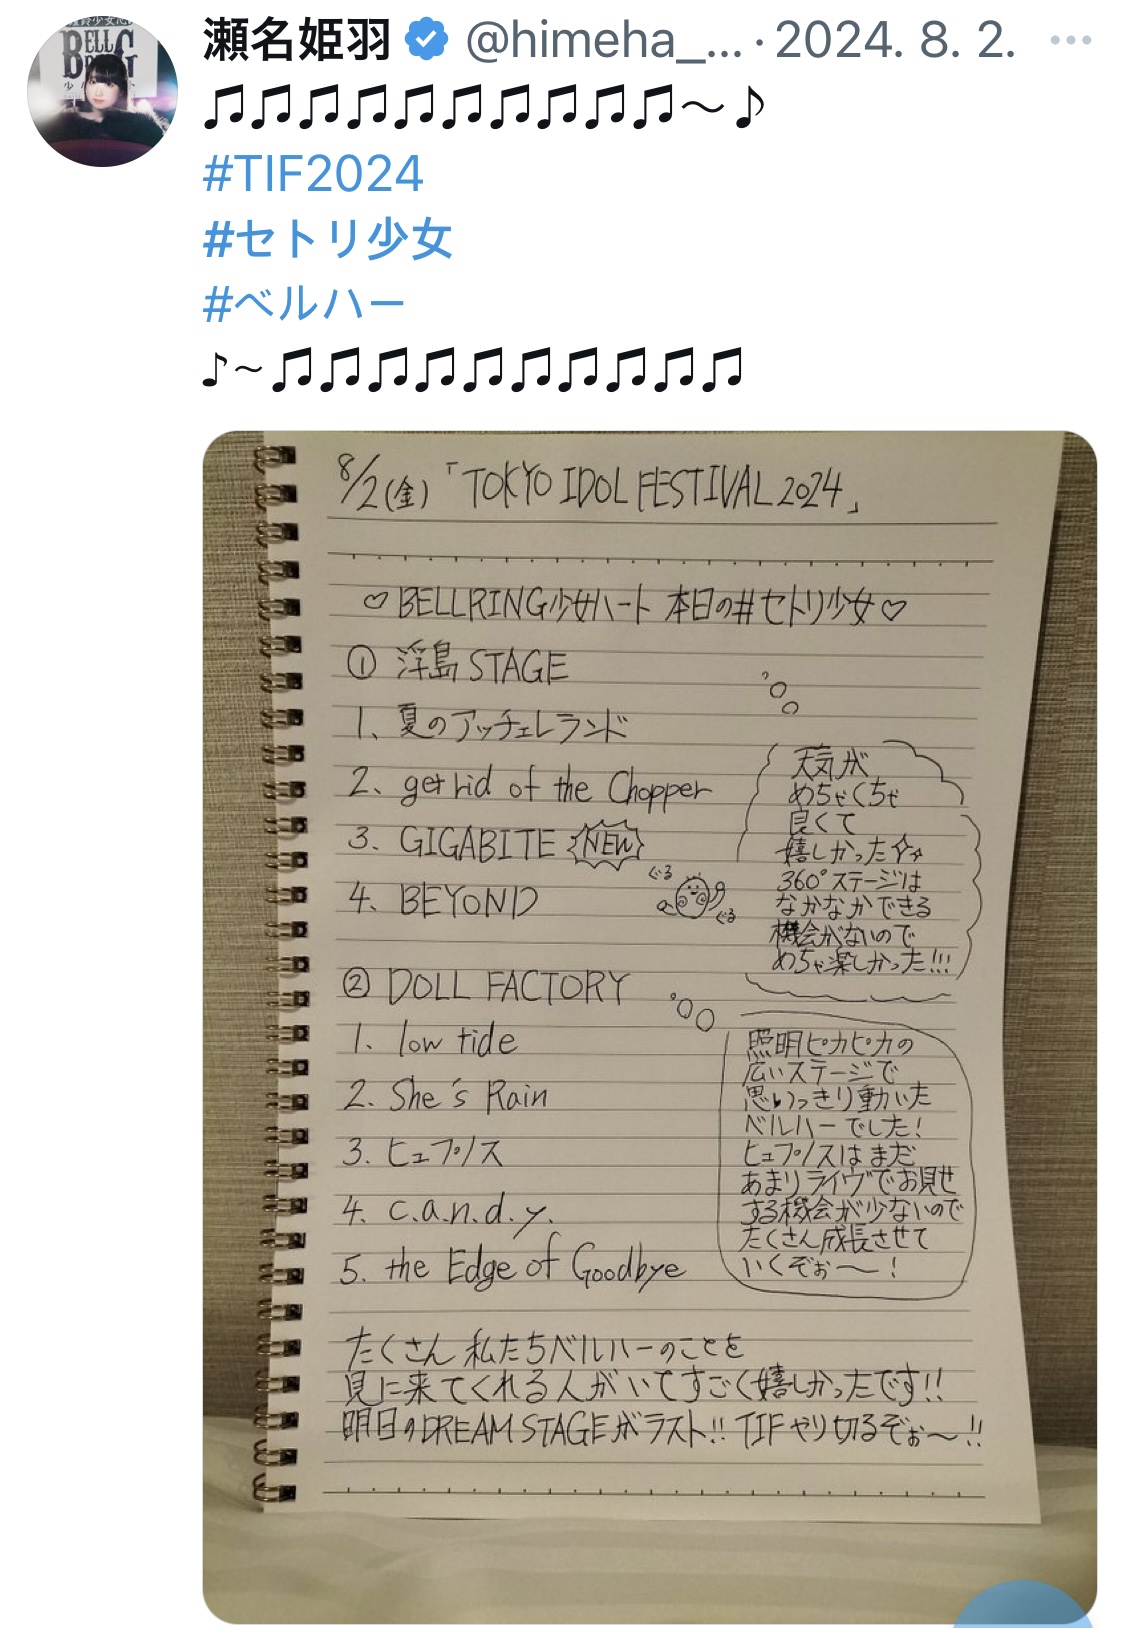 瀬名姫羽 @himeha_... · 2024. 8. 2.
♫♫♫♫♫♫♫♫♫♫～♪
#TIF2024
#セトリ少女
#ベルハー
♪~♫♫♫♫♫♫♫♫♫♫
8/2(金)「TOKYO IDOL FESTIVAL 2024」
♡ BELLRING少女ハート 本日の#セトリ少女♡
① 浮島 STAGE
1、夏のアッチェレランド
2、get rid of the Chopper
3. GIGABITE NEW
4、BEYOND
ぐる
ぐる
天気が
めちゃくちゃ
良くて
嬉しかった☆
360°ステージは
なかなかできる
機会がないので
めちゃ楽しかった!!!
② DOLL FACTORY
1. low tide
2. She's Rain
3. ヒュプノス
4. c.a.n.d.y.
5. the Edge of Goodbye
照明ピカピカの
広いステージで
思いっきり動いた
ベルハーでした!
ヒュプノスはまだ
あまりライヴでお見せ
する機会が少ないので
たくさん成長させて
いくぞぉ〜!
たくさん私たちベルハーのことを
見に来てくれる人がいてすごく嬉しかったです!!
明日のDREAM STAGEがラスト!! TIFやり切るぞぉ〜!!